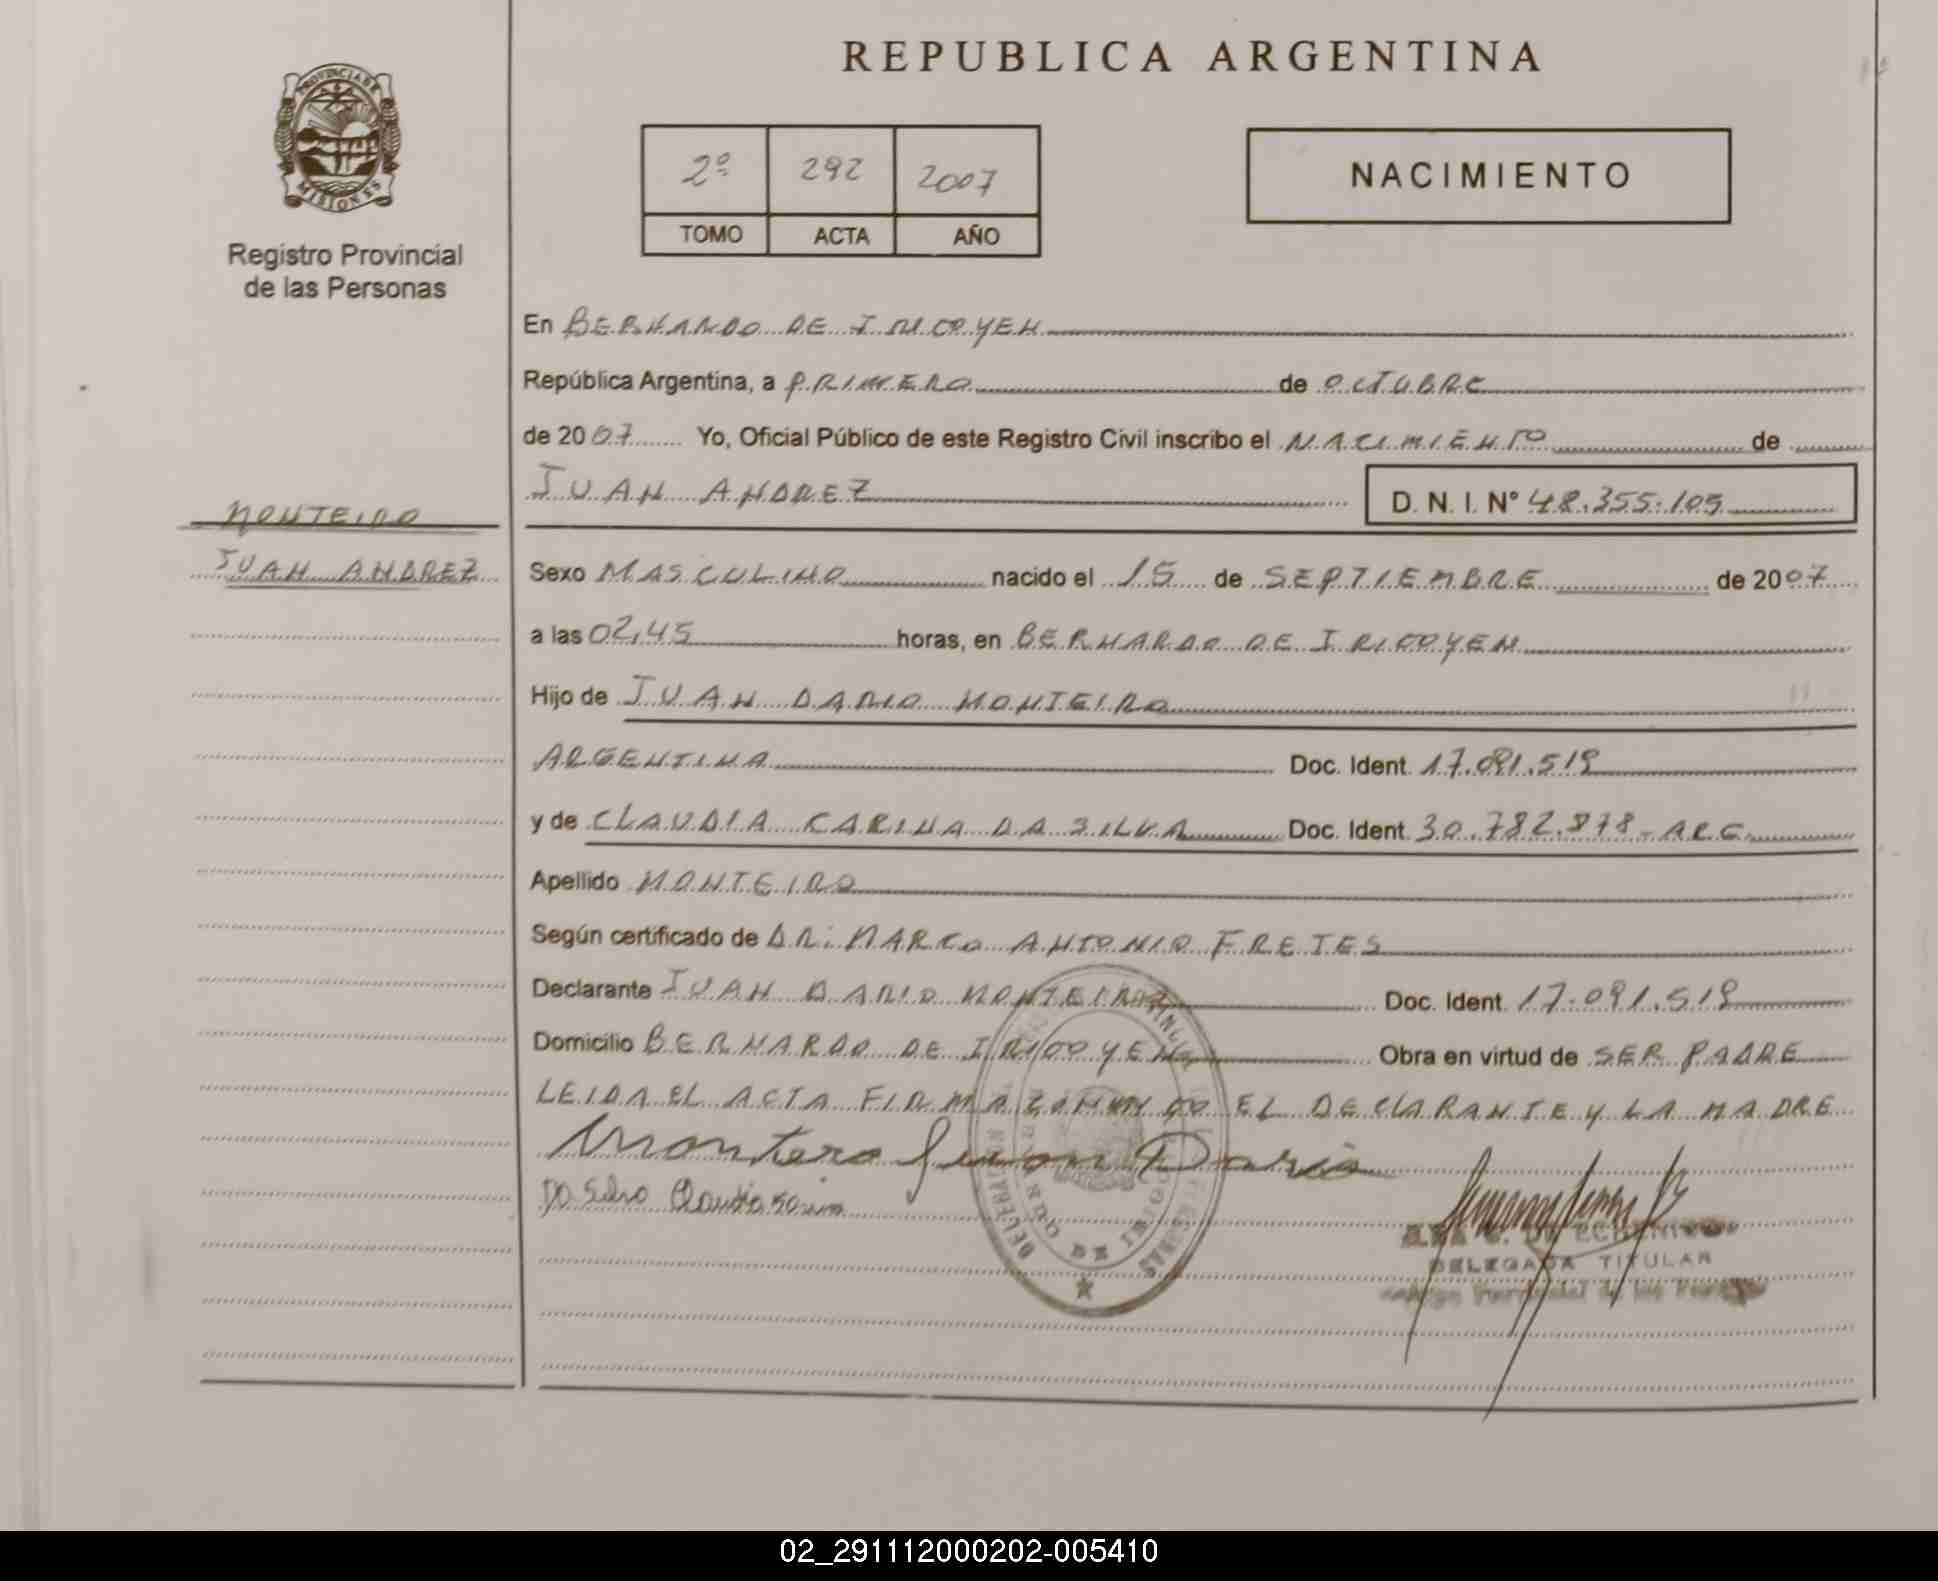 REPUBLICA ARGENTINA
PROVINCIA DE
MISIONES
Registro Provincial
de las Personas
2º 292 2007
TOMO ACTA AÑO
NACIMIENTO
En BERNARDO DE IRIGOYEN
República Argentina, a PRIMERO de OCTUBRE
de 2007 Yo, Oficial Público de este Registro Civil inscribo el NACIMIENTO de
JUAN ANDREZ D. N. I. Nº 48.355.105
MONTEIRO
JUAN ANDREZ
Sexo MASCULINO nacido el 15 de SEPTIEMBRE de 2007
a las 02,45 horas, en BERNARDO DE IRIGOYEN
Hijo de JUAN DARIO MONTEIRO
ARGENTINA Doc. Ident. 17.091.519
y de CLAUDIA CARINA DA SILVA Doc. Ident. 30.782.878-ARG.
Apellido MONTEIRO
Según certificado de DR: MARCO ANTONIO FRETES
Declarante JUAN DARIO MONTEIRO Doc. Ident. 17.091.519
Domicilio BERNARDO DE IRIGOYEN Obra en virtud de SER PADRE
LEIDA EL ACTA FIRMA CONMIGO EL DECLARANTE Y LA MADRE
Montero Juan Dario
Da Silva Claudia
DELEGADA TITULAR
02_291112000202-005410